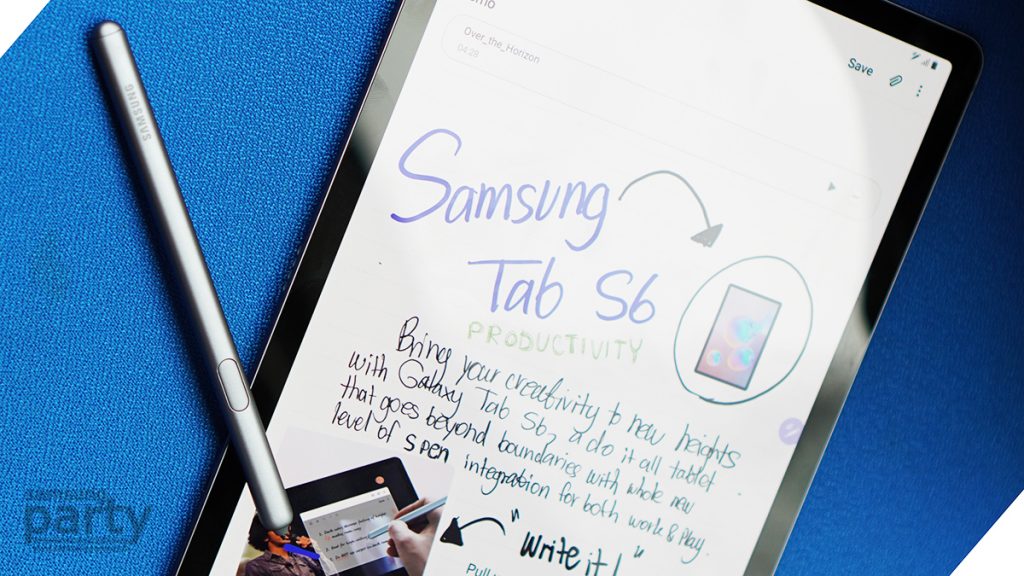 Over_the_Horizon
04:28
Save
SAMSUNG
Samsung
Tab S6
PRODUCTIVITY
Bring your creativity to new heights
with Galaxy Tab S6, a do it all tablet
that goes beyond boundaries with whole new
level of S pen integration for both work & play.
"Write it!"
samsung
party